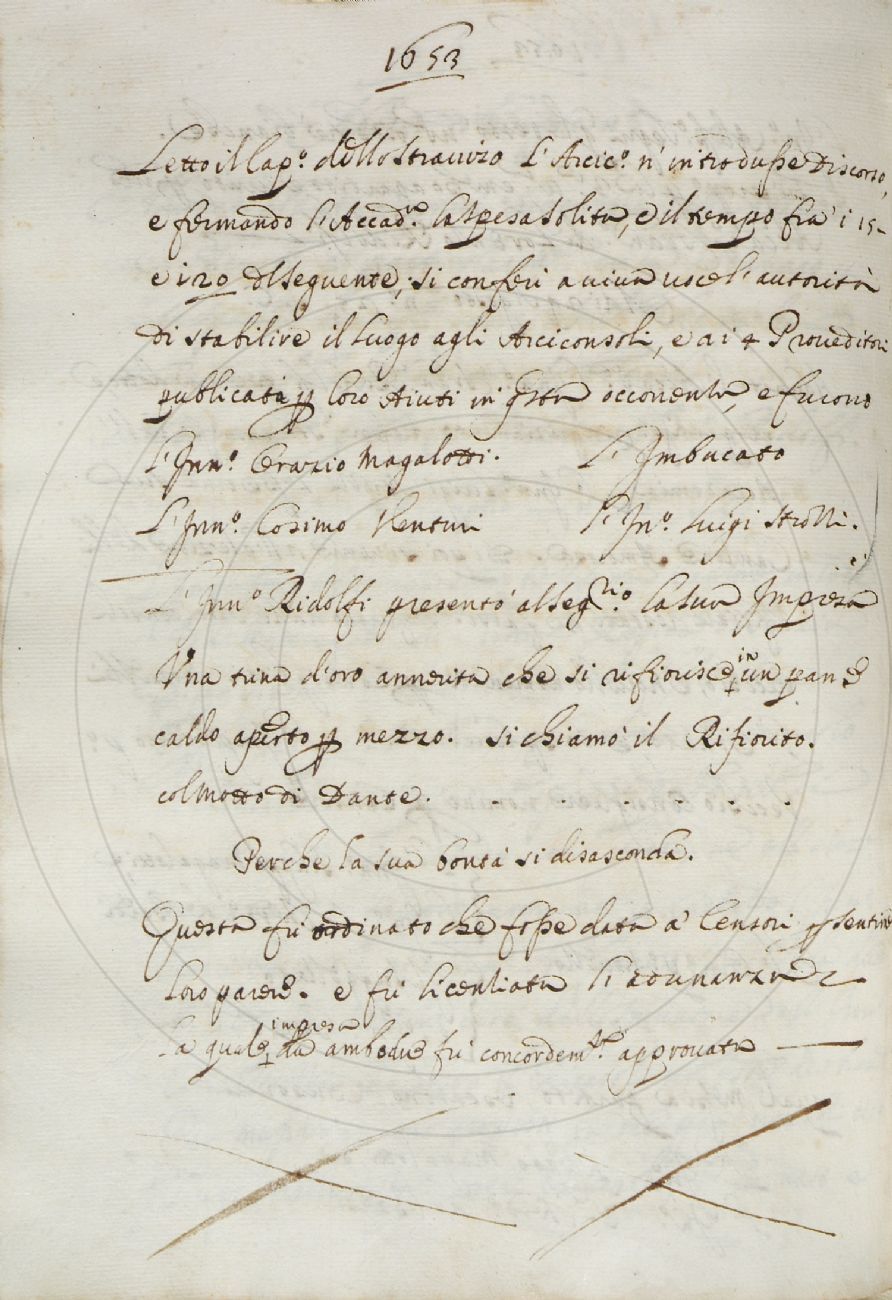 1653
Letto il Cap.º dello Stravizo L'Arcic.º n' introdusse Discorso,
e fermando l'Accad.ª la spesa solita, e il tempo fra i 15-
e i 20 del seguente, si conferì a viva voce l'autorità
di stabilire il luogo agli Arciconsoli, e a i 4 Proveditori
publicati p loro Aiuti in qsta occorrenza, e furono
L'Inn.º Orazio Magalotti. L'Imbucato
L'Inn.º Cosimo Venturi L'In.º Luigi Strozzi.
L'Inn.º Ridolfi presentò al Seg.rio la sua Impresa
Una trina d'oro annerita che si rifiorisce in un pane
caldo aperto p mezzo. si chiamò il Rifiorito.
col Motto di Dante. . . . . . .
Perche la sua bontà si disasconda.
Questa fù ordinato che fosse data a' Censori p sentire
loro parere. e fù licenziata l'adunanza
la quale impresa da ambedue fù concordem.te approvata